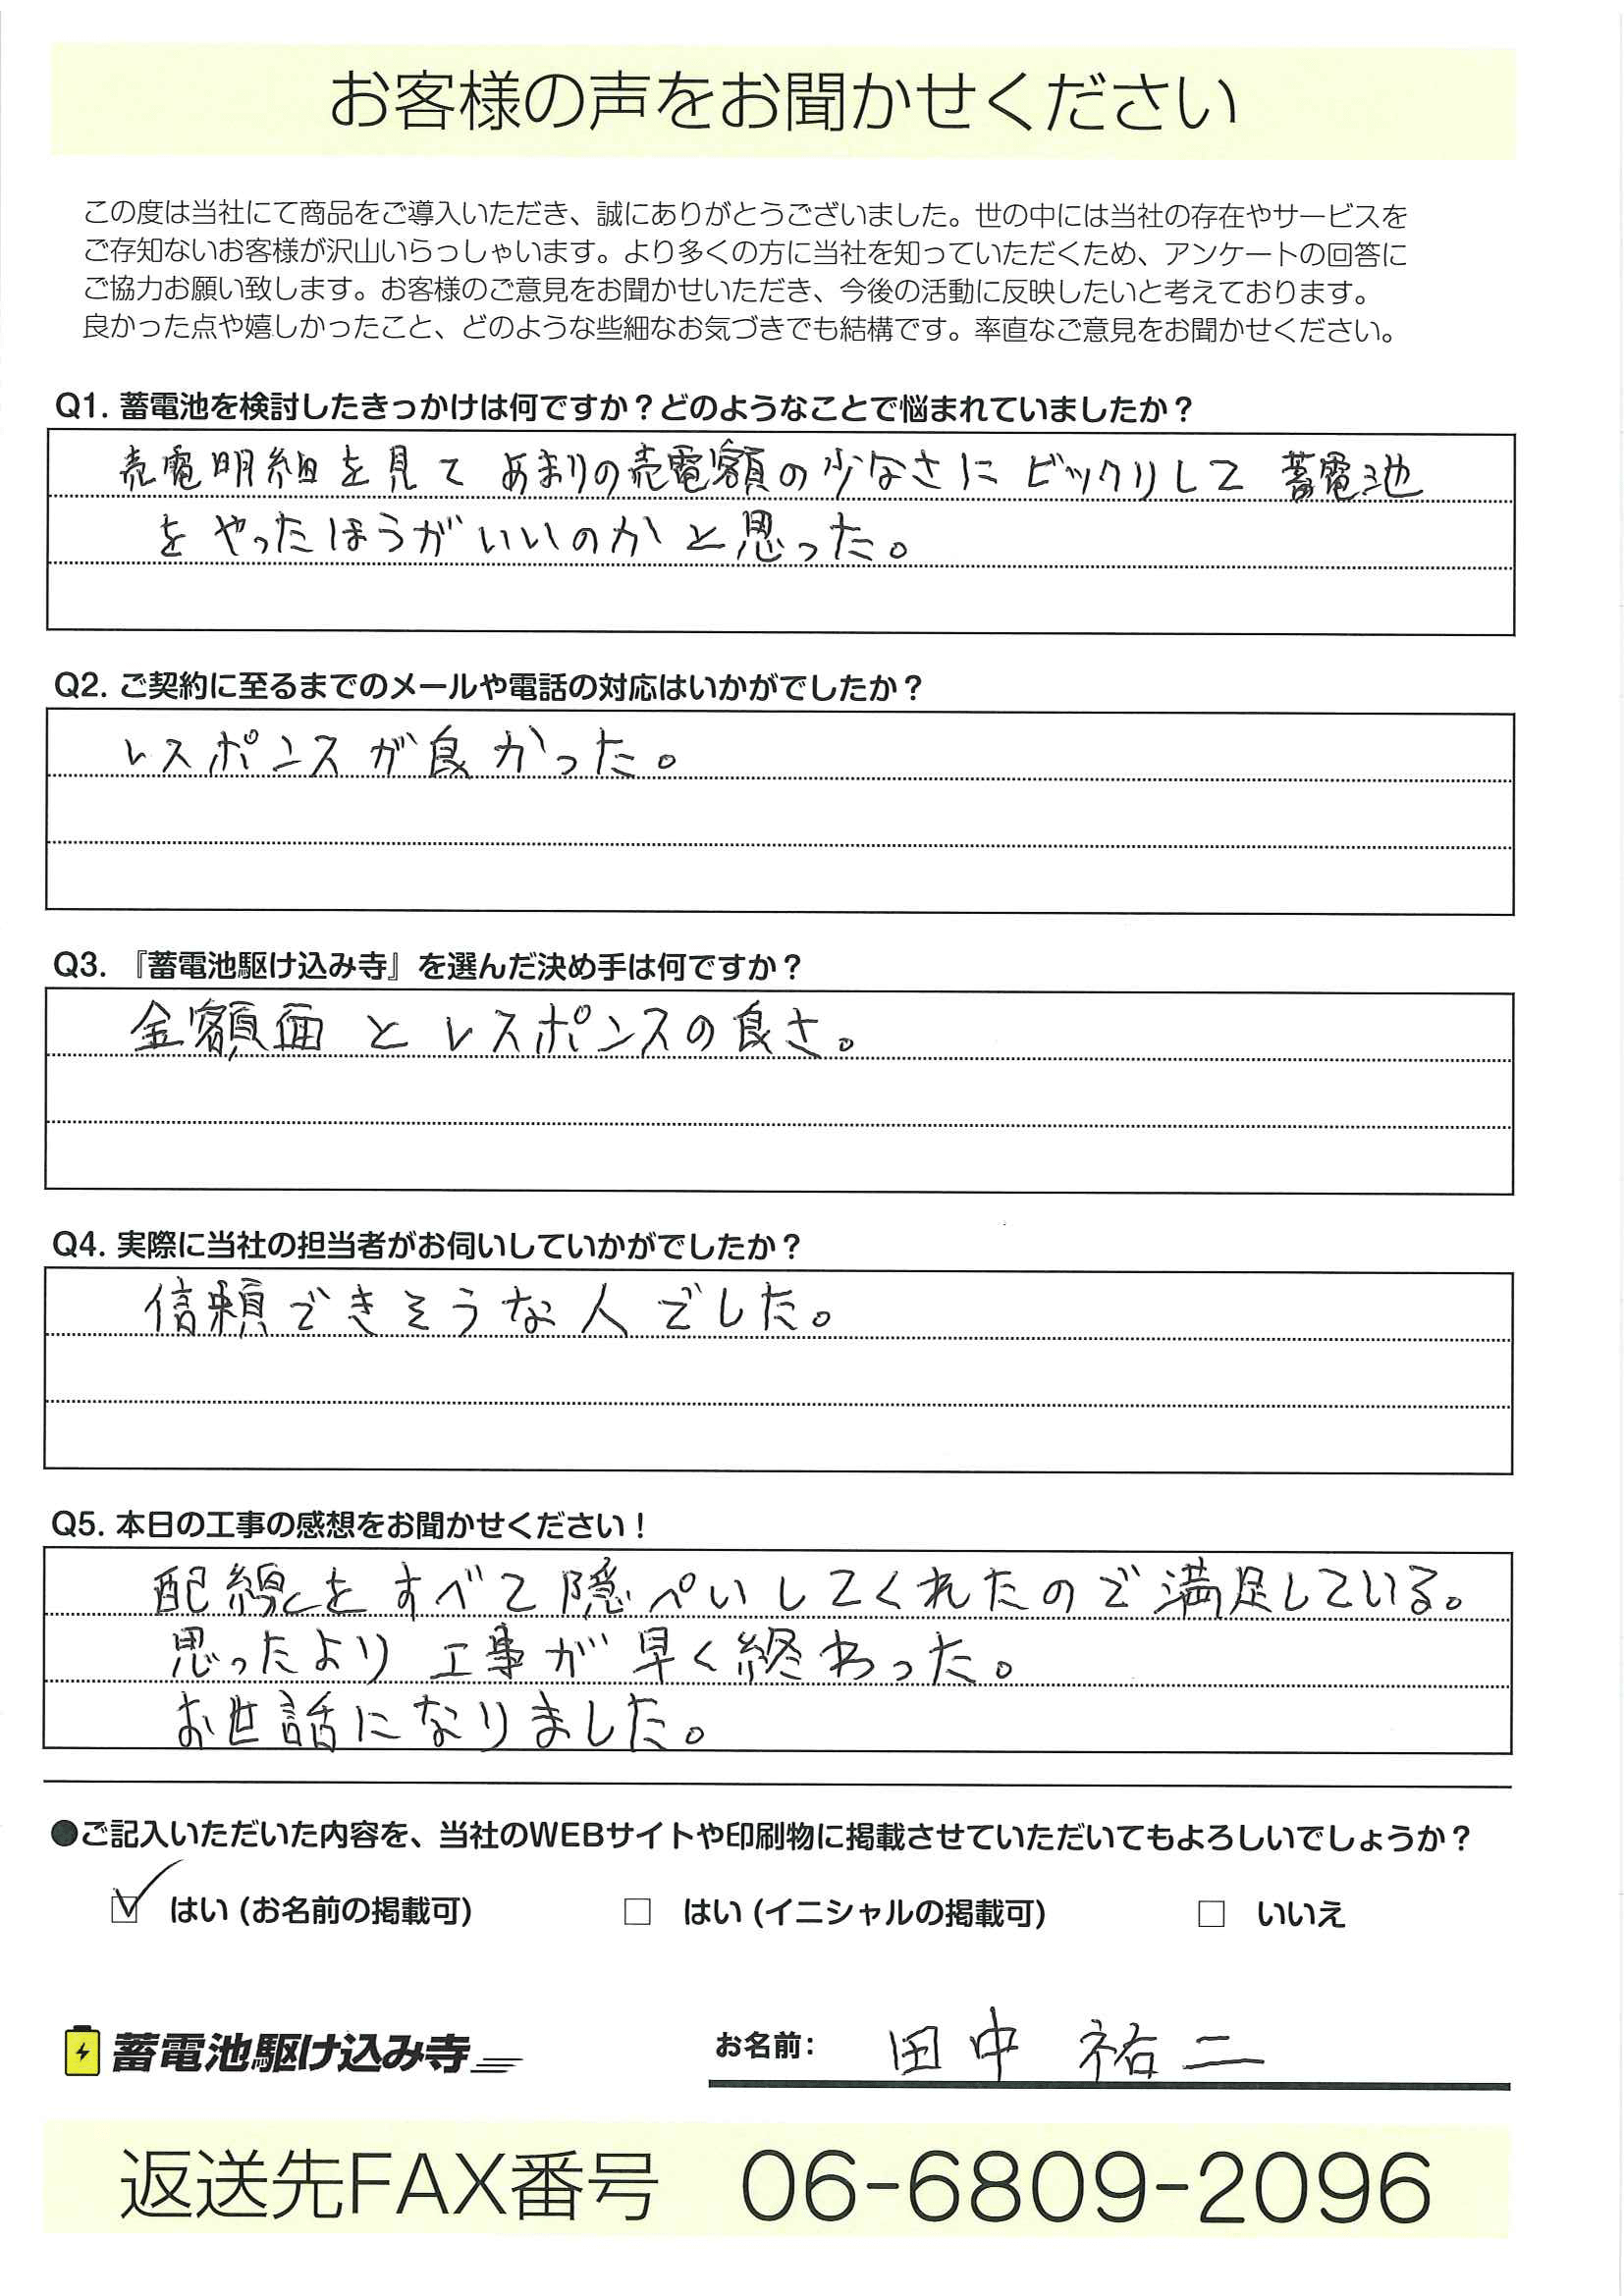 お客様の声をお聞かせください
この度は当社にて商品をご導入いただき、誠にありがとうございました。世の中には当社の存在やサービスを
ご存知ないお客様が沢山いらっしゃいます。より多くの方に当社を知っていただくため、アンケートの回答に
ご協力お願い致します。お客様のご意見をお聞かせいただき、今後の活動に反映したいと考えております。
良かった点や嬉しかったこと、どのような些細なお気づきでも結構です。率直なご意見をお聞かせください。
Q1. 蓄電池を検討したきっかけは何ですか？どのようなことで悩まれていましたか？
売電明細を見て あまりの売電額の少なさに ビックリして 蓄電池
を やったほうがいいのかと思った。
Q2. ご契約に至るまでのメールや電話の対応はいかがでしたか？
レスポンスが良かった。
Q3. 『蓄電池駆け込み寺』を選んだ決め手は何ですか？
金額面 と レスポンスの良さ。
Q4. 実際に当社の担当者がお伺いしていかがでしたか？
信頼できそうな人でした。
Q5. 本日の工事の感想をお聞かせください！
配線をすべて隠ぺいしてくれたので満足している。
思ったより 工事が早く終わった。
お世話になりました。
●ご記入いただいた内容を、当社のWEBサイトや印刷物に掲載させていただいてもよろしいでしょうか？
☑ はい (お名前の掲載可) □ はい (イニシャルの掲載可) □ いいえ
蓄電池駆け込み寺 お名前: 田中 祐二
返送先FAX番号 06-6809-2096